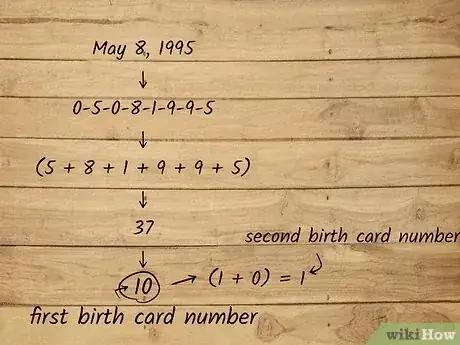 May 8, 1995
↓
0-5-0-8-1-9-9-5
↓
(5 + 8 + 1 + 9 + 9 + 5)
↓
37
↓
second birth card number
10 → (1 + 0) = 1
first birth card number
wikiHow